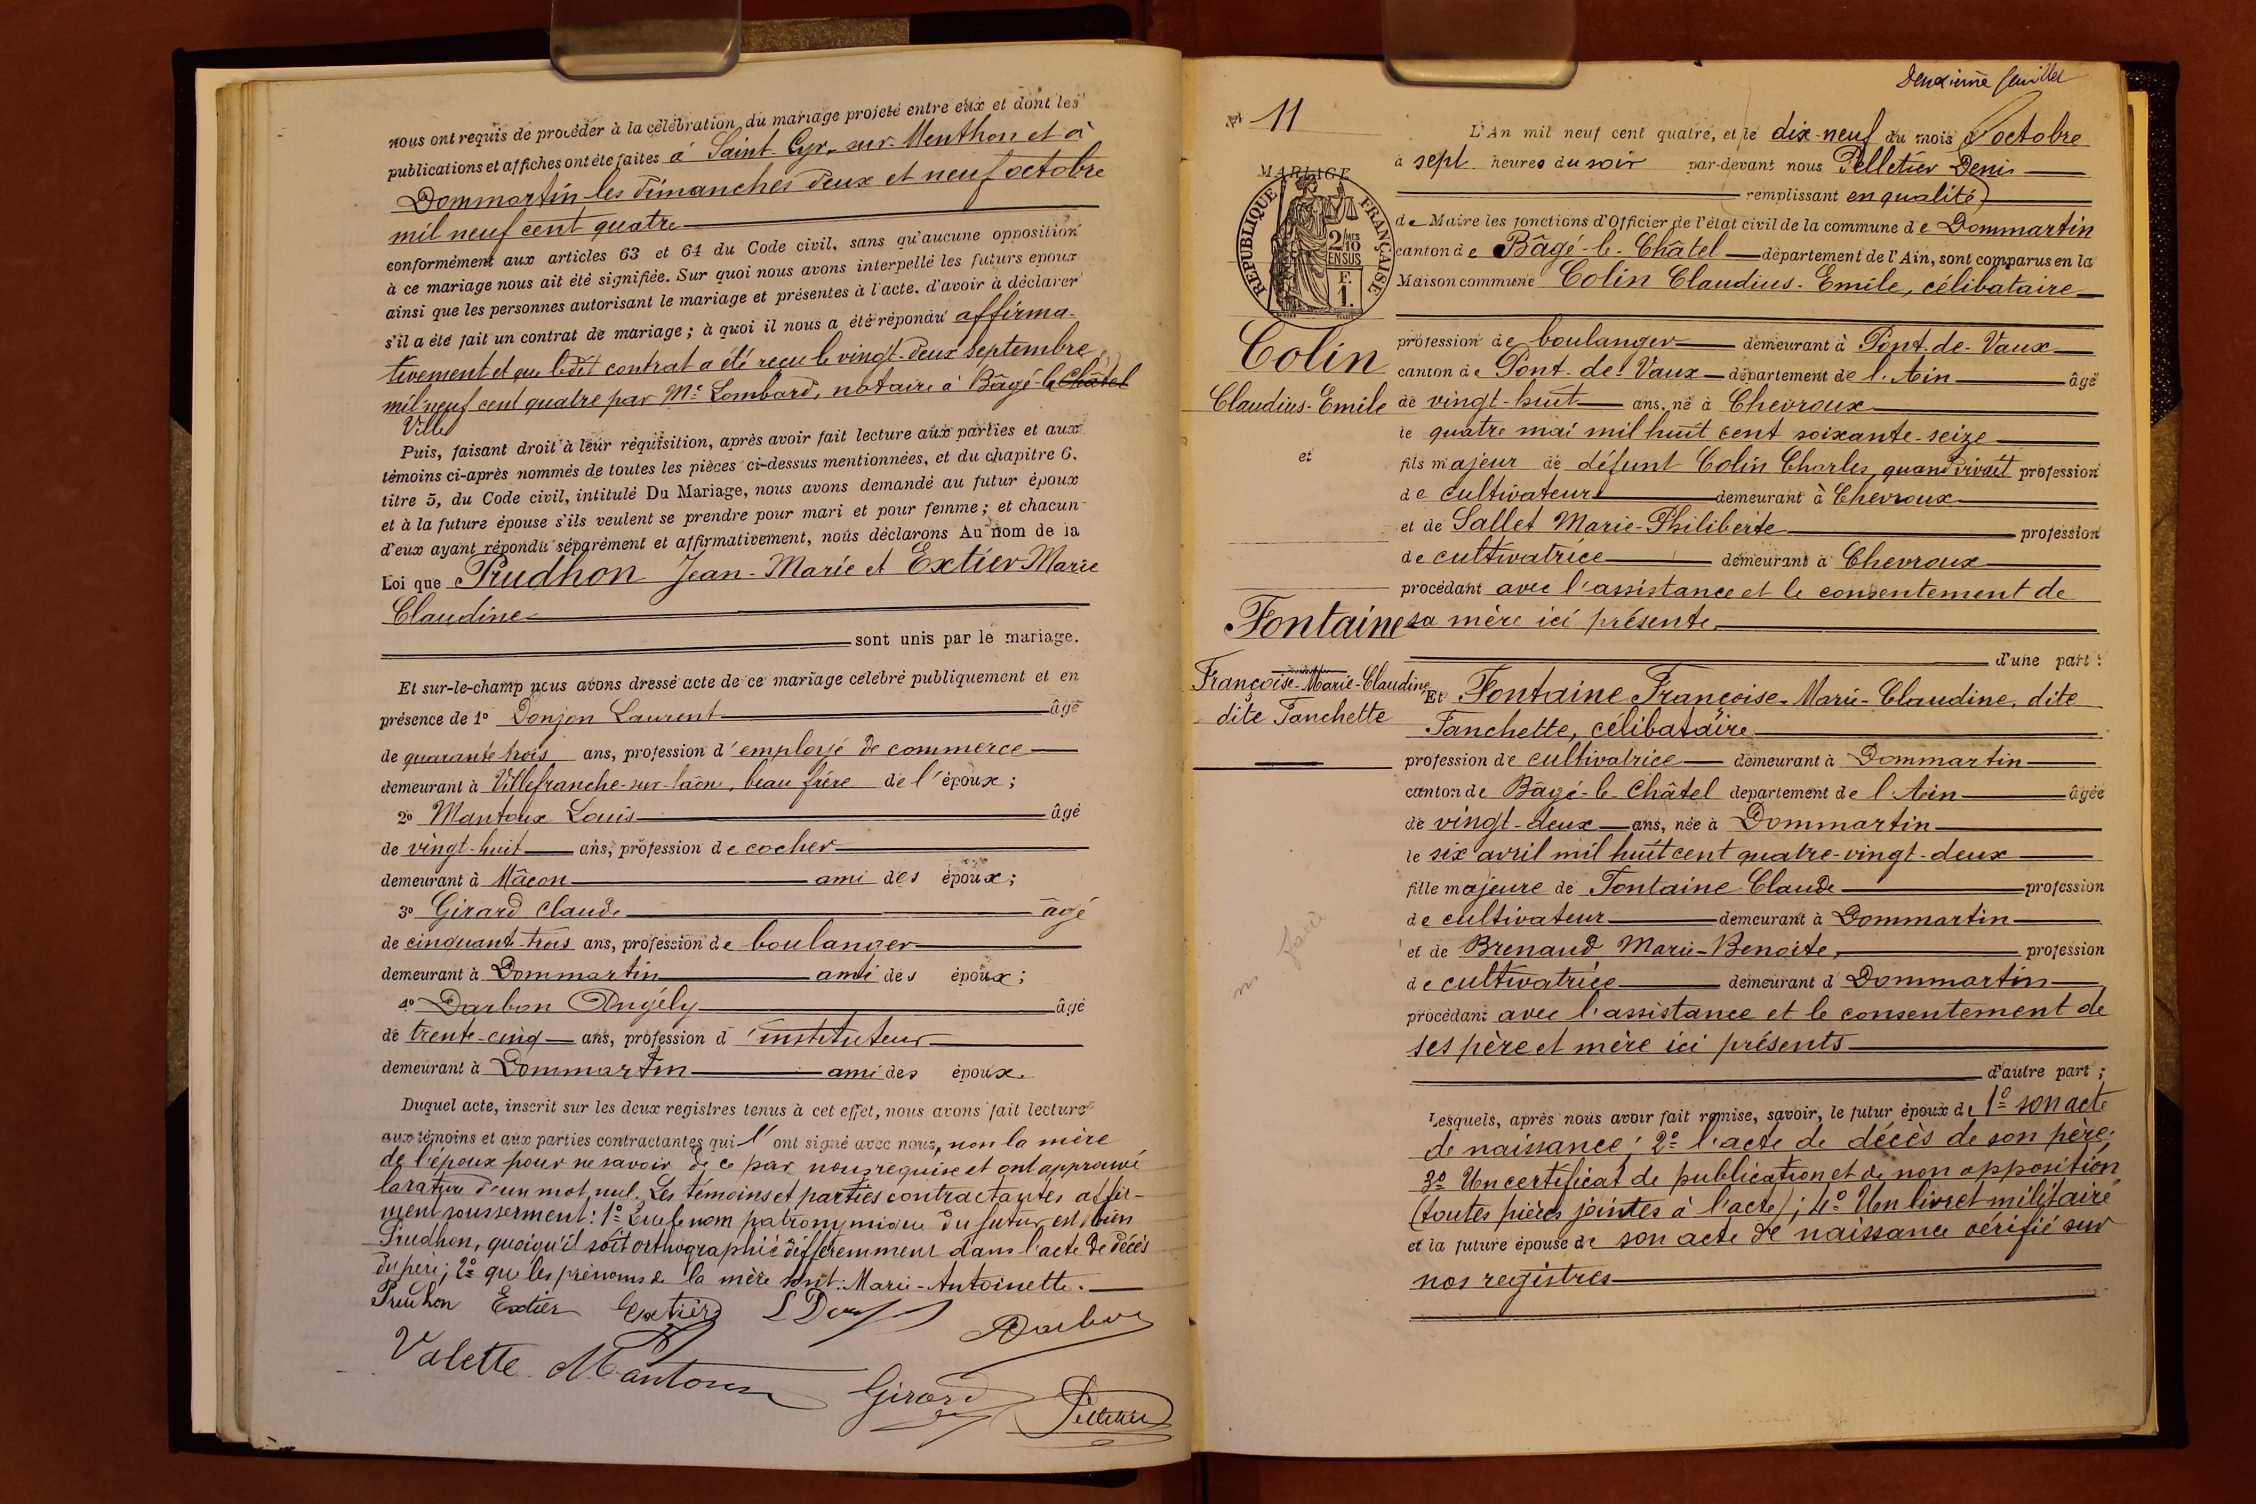 nous ont requis de procéder à la célébration du mariage projeté entre eux et dont les
publications et affiches ont été faites à Saint-Cyr-sur-Menthon et à
Dommartin les dimanches deux et neuf octobre
mil neuf cent quatre
conformément aux articles 63 et 64 du Code civil, sans qu'aucune opposition
à ce mariage nous ait été signifiée. Sur quoi nous avons interpellé les futurs époux
ainsi que les personnes autorisant le mariage et présentes à l'acte, d'avoir à déclarer
s'il a été fait un contrat de mariage ; à quoi il nous a été répondu affirma-
tivement et que ledit contrat a été reçu le vingt-deux septembre
mil neuf cent quatre par Me Lombard, notaire à Bâgé-le Châtel
Ville
Puis, faisant droit à leur réquisition, après avoir fait lecture aux parties et aux
témoins ci-après nommés de toutes les pièces ci-dessus mentionnées, et du chapitre 6,
titre 5, du Code civil, intitulé Du Mariage, nous avons demandé au futur époux
et à la future épouse s'ils veulent se prendre pour mari et pour femme ; et chacun
d'eux ayant répondu séparément et affirmativement, nous déclarons Au nom de la
Loi que Prudhon Jean-Marie et Extier Marie
Claudine
sont unis par le mariage.
Et sur-le-champ nous avons dressé acte de ce mariage célébré publiquement et en
présence de 1° Donjon Laurent âgé
de quarante trois ans, profession d'employé de commerce
demeurant à Villefranche-sur-Saône, beau frère de l'époux ;
2° Mantoux Louis âgé
de vingt-huit ans, profession de cocher
demeurant à Mâcon ami des époux ;
3° Girard Claude âgé
de cinquante-trois ans, profession de boulanger
demeurant à Dommartin ami des époux ;
4° Darbon Angély âgé
de trente-cinq ans, profession d'instituteur
demeurant à Dommartin ami des époux.
Duquel acte, inscrit sur les deux registres tenus à cet effet, nous avons fait lecture
aux témoins et aux parties contractantes qui l'ont signé avec nous, non la mère
de l'époux pour ne savoir de ce par nous requise et ont approuvé
la rature d'un mot nul. Les témoins et parties contractantes affir-
ment sous serment : 1° Que le nom patronymique du futur est bien
Prudhon, quoiqu'il soit orthographié différemment dans l'acte de décès
du père ; 2° que les prénoms de la mère sont : Marie-Antoinette.
Prudhon Extier Extier
Darbon
Valette Mantoux Girard Pelletier
Deuxième feuillet
N° 11
L'An mil neuf cent quatre, et le dix-neuf du mois d'octobre
à sept heures du soir par-devant nous Pelletier Denis
remplissant en qualité
de Maire les fonctions d'Officier de l'état civil de la commune de Dommartin
canton de Bâgé-le-Châtel département de l'Ain, sont comparus en la
Maison commune Colin Claudius-Emile, célibataire
MARIAGE
REPUBLIQUE FRANÇAISE
2/10 MES
EN SUS
F.
1.
Colin
Claudius-Emile
et
Fontaine
Françoise-Marie-Claudine
dite Fanchette
profession de boulanger demeurant à Pont-de-Vaux
canton de Pont-de-Vaux département de l'Ain âgé
de vingt-huit ans, né à Chevroux
le quatre mai mil huit cent soixante-seize
fils majeur de défunt Colin Charles, quand vivait profession
de cultivateur demeurant à Chevroux
et de Sallet Marie-Philiberte profession
de cultivatrice demeurant à Chevroux
procédant avec l'assistance et le consentement de
sa mère ici présente
d'une part :
Et Fontaine Françoise-Marie-Claudine, dite
Fanchette, célibataire
profession de cultivatrice demeurant à Dommartin
canton de Bâgé-le-Châtel département de l'Ain âgée
de vingt-deux ans, née à Dommartin
le six avril mil huit cent quatre-vingt-deux
fille majeure de Fontaine Claude profession
de cultivateur demeurant à Dommartin
et de Brenaud Marie-Benoite, profession
de cultivatrice demeurant à Dommartin
procédant avec l'assistance et le consentement de
ses père et mère ici présents
d'autre part ;
Lesquels, après nous avoir fait remise, savoir, le futur époux de 1° son acte
de naissance ; 2° l'acte de décès de son père ;
3° Un certificat de publication et de non opposition
(toutes pièces jointes à l'acte) ; 4° Un livret militaire
et la future épouse de son acte de naissance vérifié sur
nos registres